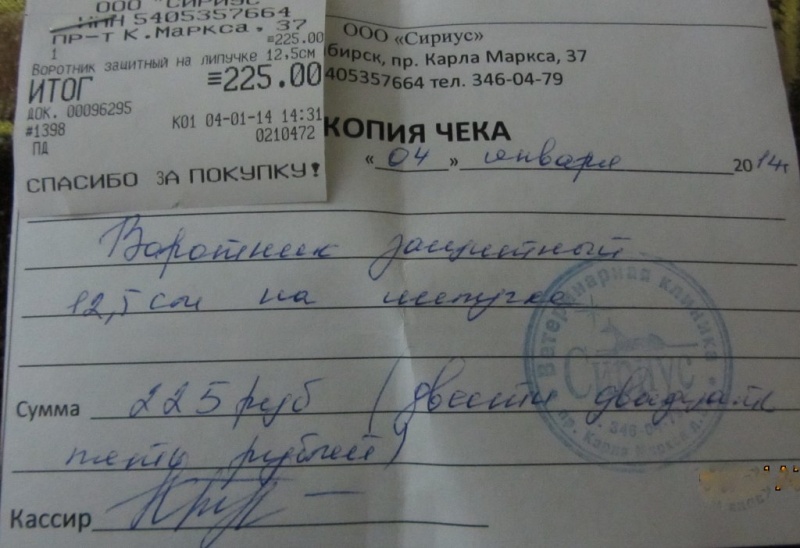 ООО "СИРИУС
ИНН 5405357664
ПР-Т К.Маркса, 37
1 ≡225.00
Воротник защитный на липучке 12,5см
ИТОГ ≡225.00
ДОК. 00096295
#1398 К01 04-01-14 14:31
ПД 0210472
СПАСИБО ЗА ПОКУПКУ!
ООО «Сириус»
бирск, пр. Карла Маркса, 37
405357664 тел. 346-04-79
КОПИЯ ЧЕКА
« 04 » января 2014г
Воротник защитный
12,5 см на липучке
Ветеринарная клиника
Сириус
пр. Карла Маркса
Сумма 225 руб (двести двадцать
пять рублей)
Кассир